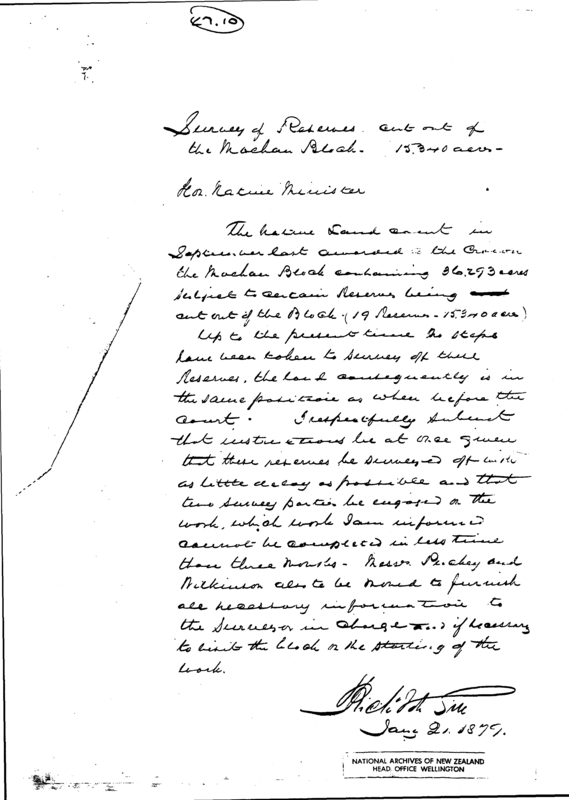 47.10
Survey of Reserves cut out of
the Moehau Block. 15.340 acres -
Hon. Native Minister
The Native Land Court in
September last awarded to the Crown
the Moehau Block containing 36.293 acres
subject to certain Reserves being
cut out of the Block - (19 Reserves - 15340 acres)
Up to the present time no steps
have been taken to survey off these
Reserves, the land consequently is in
the same position as when before the
Court. I respectfully submit
that instructions be at once given
that these reserves be surveyed off with
as little delay as possible and that
two survey parties be engaged on the
work, which work I am informed
cannot be completed in less time
than three months - Messrs. Puckey and
Wilkinson also to be to furnish
all necessary information to
the Surveyor in charge and if necessary
to visit the block on the starting of the
work.
Jany 21. 1879.
NATIONAL ARCHIVES OF NEW ZEALAND
HEAD OFFICE WELLINGTON